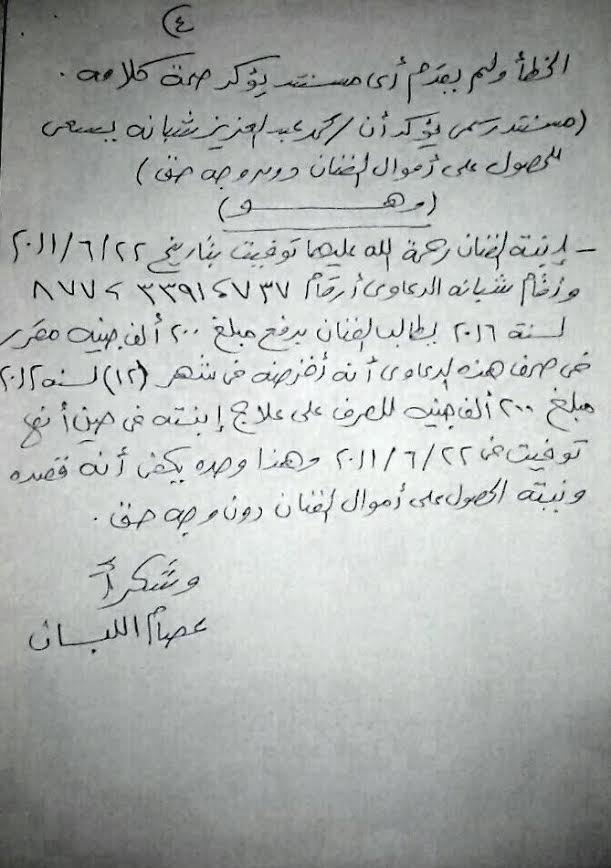 ٤
الخطأ ولم يقدم أى مستند يؤكد صحة كلامه .
(مستند رسمى يؤكد أن / محمد عبد العزيز شبانه يسعى
للحصول على أموال الفنان دون وجه حق )
(وهـــــو)
– إبنة الفنان رحمة الله عليها توفيت بتاريخ ٢٠١١/٦/٢٢
وأقام شبانه الدعاوى أرقام ٧٣٧ ، ٣٣٩١ ، ٨٧٧
لسنة ٢٠١٦ بطالب الفنان بدفع مبلغ ٢٠٠ ألف جنيه مقرر
فى صحف هذه الدعاوى أنه أقرضه فى شهر (١٢) لسنة ٢٠١٢
مبلغ ٢٠٠ ألف جنيه للصرف على علاج إبنته فى حين أنها
توفيت فى ٢٠١١/٦/٢٢ وهذا وحده يكفى أنه قصده
ونيته الحصول على أموال الفنان دون وجه حق .
وشكراً
عصام اللبـان